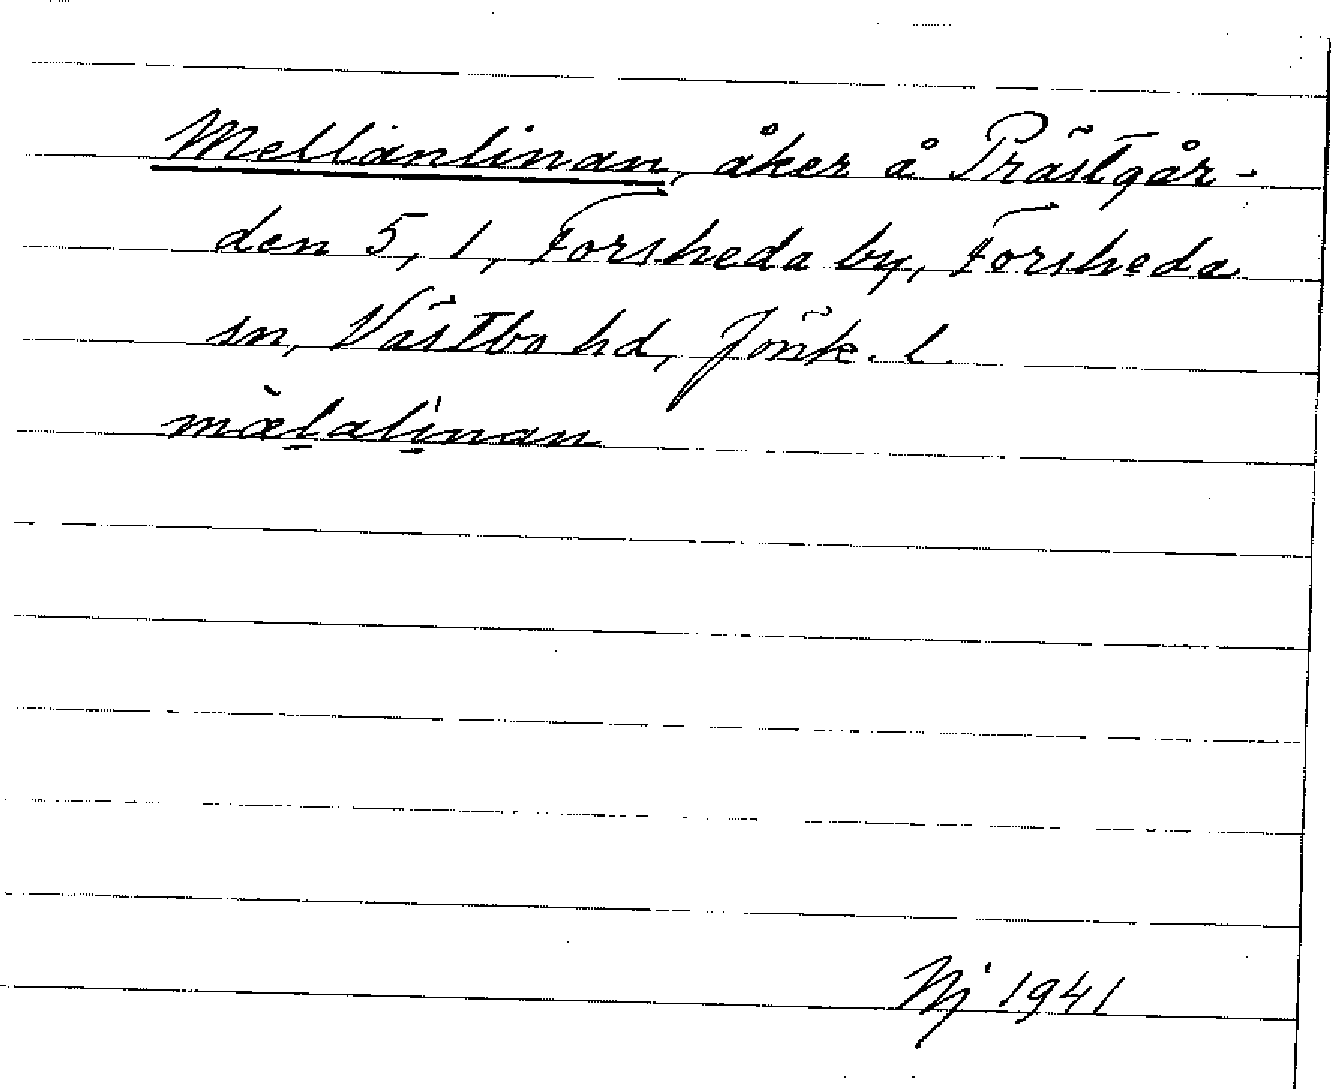 Mellanlinan, åker å Prästgår-
den 5, 1, Forsheda by, Forsheda
sn, Västbo hd, Jönk. l.
mὰlalínan
Nj 1941